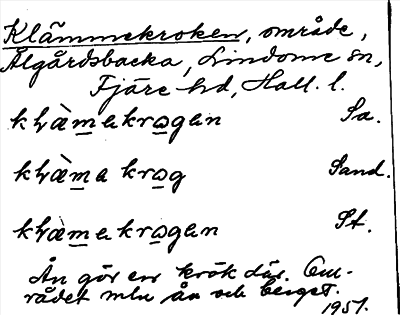 Klämmekroken, område,
Älgårdsbacka, Lindome sn,
Fjäre hd, Hall. l.
kḷæ̀mekrogen Sa.
kḷæ̀me krog Sand.
kḷæ̀mekrogen St.
Ån gör en krök där. Om-
rådet mln ån och berget.
1951.